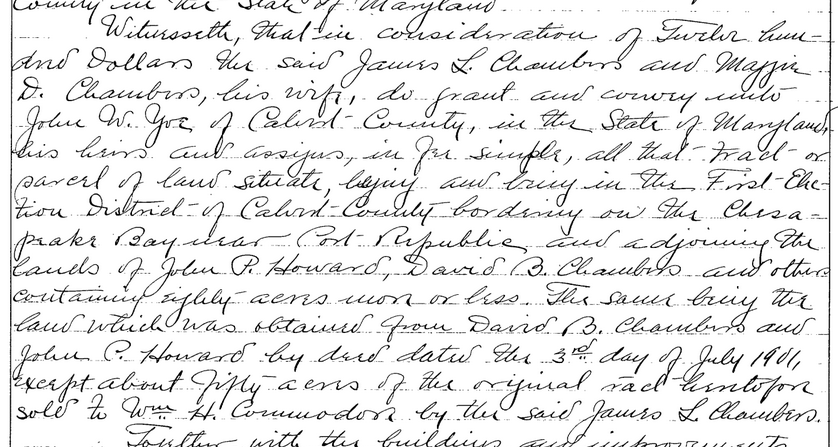 County in the State of Maryland.
Witnesseth, that in consideration of Twelve hun-
dred Dollars the said James L. Chambers and Maggie
D. Chambers, his wife, do grant and convey unto
John W. Yoe of Calvert County, in the State of Maryland,
his heirs and assigns, in fee simple, all that tract or
parcel of land situate, lying and being in the First Elec-
tion District of Calvert County bordering on the Chesa-
peake Bay near Port Republic and adjoining the
lands of John P. Howard, David B. Chambers and others
containing eighty acres more or less. The same being the
land which was obtained from David B. Chambers and
John P. Howard by deed dated the 3rd day of July 1901,
except about fifty acres of the original tract heretofore
sold to Wm H. Commodore by the said James L. Chambers.
Together with the buildings and improvements